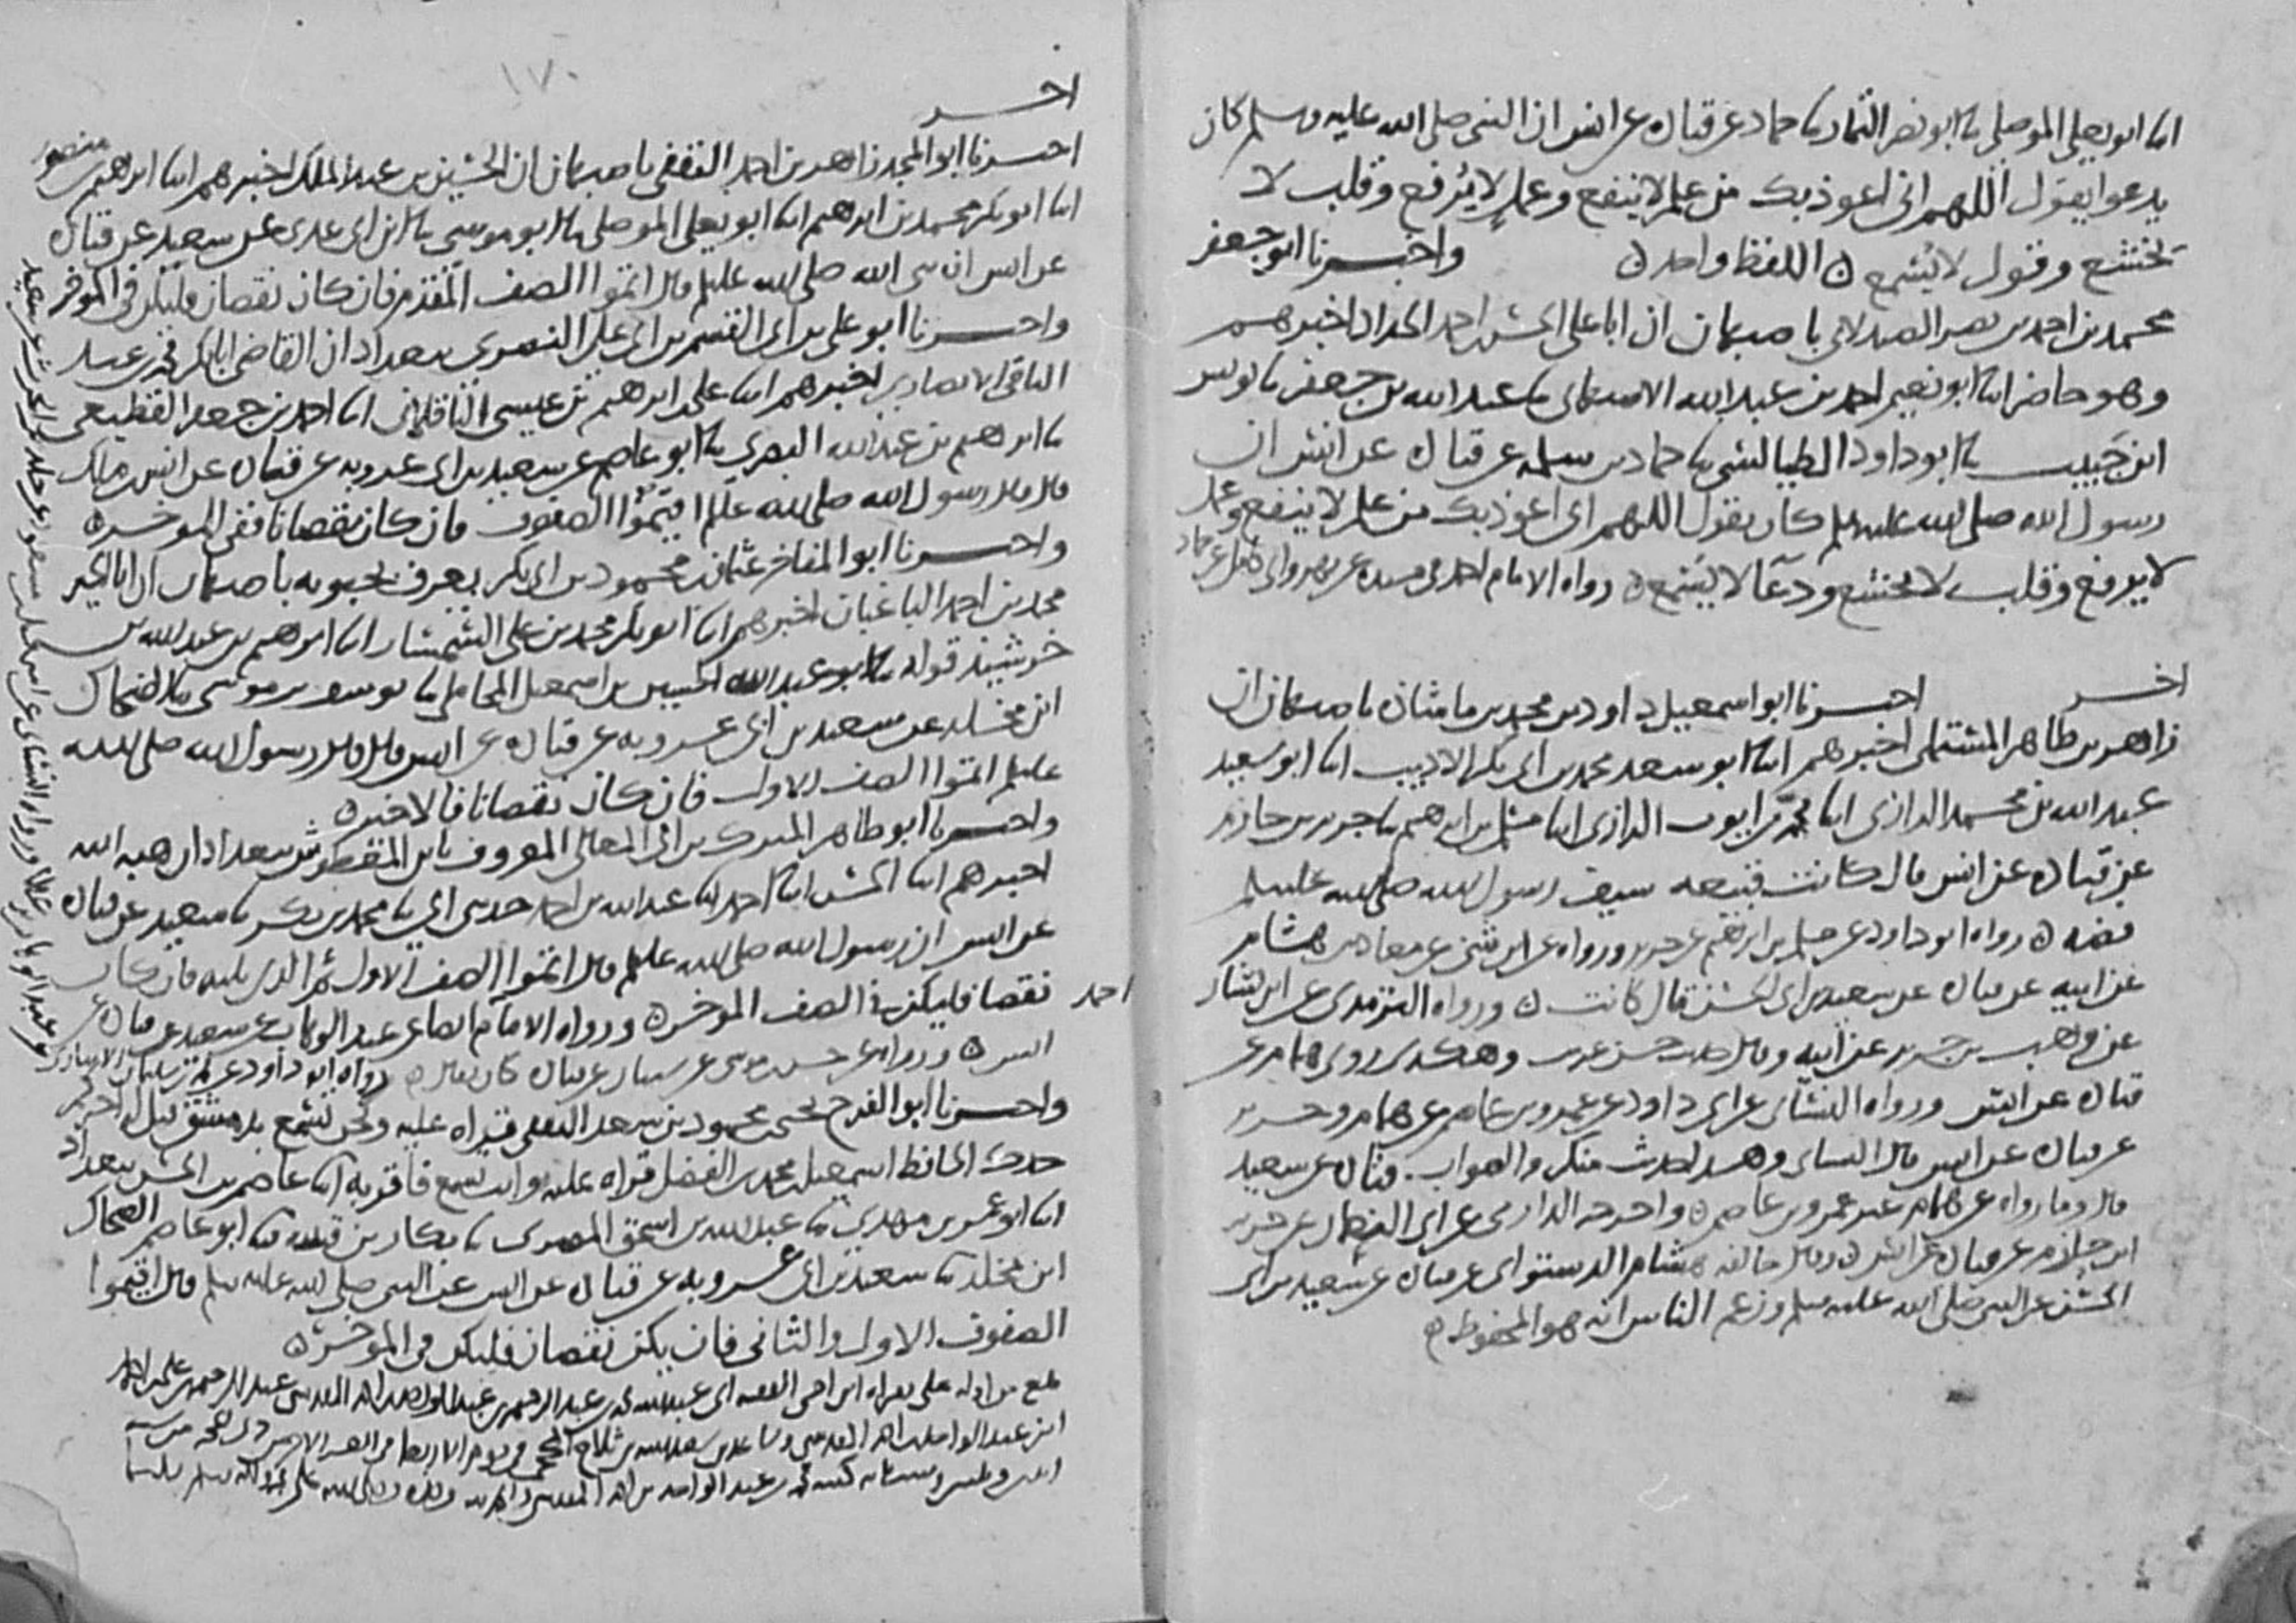 انا ابو يعلى الموصلي نا ابو نصر التمار نا حماد عن قتادة عن انس ان النبي صلى الله عليه وسلم كان
يدعوا يقول اللهم اني اعوذ بك من علم لا ينفع وعمل لا يرفع وقلب لا
يخشع وقول لا يسمع اللفظ واحد واخبرنا ابو جعفر
محمد بن احمد بن نصر الصيدلاني باصبهان ان ابا علي الحسن بن احمد الحداد اخبرهم
وهو حاضر انا ابو نعيم احمد بن عبد الله الاصبهاني نا عبد الله بن جعفر نا يونس
ابن حبيب نا ابو داود الطيالسي نا حماد بن سلمه عن قتادة عن انس ان
رسول الله صلى الله عليه وسلم كان يقول اللهم اني اعوذ بك من علم لا ينفع وعمل
لا يرفع وقلب لا يخشع ودعا لا يسمع رواه الامام احمد في مسنده عن بهز وابي كامل عن حماد
اخر اخبرنا ابو اسمعيل داود بن محمد بن ماشاده باصبهان ان
زاهر بن طاهر المستملي اخبرهم انا ابو سعد محمد بن ابي بكر الاديب انا ابو سعيد
عبد الله بن محمد الرازي انا محمد بن ايوب الرازي انا مسلم بن ابراهيم نا جرير بن حازم
عن قتادة عن انس قال كانت قبيعه سيف رسول الله صلى الله عليه وسلم
فضه رواه ابو داود عن مسلم بن ابراهيم عن جرير ورواه عن ابن مثنى عن معاذ بن هشام
عن ابيه عن قتادة عن سعيد بن ابي الحسن قال كانت ورواه الترمذي عن ابن بشار
عن وهب بن جرير عن ابيه وقال حديث حسن غريب وهكذى روى همام عن
قتادة عن انس ورواه النسائي عن ابي داود عن عمرو بن عاصم عن همام وجرير
عن قتادة عن انس قال النسائي وهذا حديث منكر والصواب قتادة عن سعيد
قال وما رواه عن همام غير عمرو بن عاصم واخرجه الدارمي عن ابي النعمان عن جرير
ابن حازم عن قتادة عن انس وقال خالفه هشام الدستوائي عن قتادة عن سعيد بن ابي
الحسن عن النبي صلى الله عليه وسلم وزعم الناس انه هو المحفوظ
١٧٠
اخر
اخبرنا ابو المجد زاهر بن احمد الثقفي باصبهان ان الحسين بن عبد الملك اخبرهم انا ابراهيم بن منصور
انا ابو بكر محمد بن ابراهيم انا ابو يعلى الموصلي نا ابو موسى نا ابن ابي عدي عن سعيد عن قتادة
عن انس ان نبي الله صلى الله عليه وسلم قال اتموا الصف المقدم فان كان نقصان فليكن في المؤخر
واخبرنا ابو علي بن ابي القسم بن ابي علي البصري ببغداد ان القاضي ابا بكر محمد بن عبد
الباقي الانصاري اخبرهم انا علي بن ابراهيم بن عيسى الباقلاني انا احمد بن جعفر القطيعي
نا ابراهيم بن عبد الله البصري نا ابو عاصم عن سعيد بن ابي عروبه عن قتادة عن انس بن مالك
قال قال رسول الله صلى الله عليه وسلم اقيموا الصفوف فان كان نقصانا ففي المؤخر
واخبرنا ابو المفاخر عثمان بن محمود بن ابي بكر يعرف بحبويه باصبهان ان ابا الخير
محمد بن احمد الباغبان اخبرهم انا ابو بكر محمد بن علي السمسار انا ابراهيم بن عبد الله بن
خرشيذ قوله نا ابو عبد الله الحسين بن اسمعيل المحاملي نا يوسف بن موسى نا الضحاك
ابن مخلد عن سعيد بن ابي عروبه عن قتادة عن انس قال قال رسول الله صلى الله
عليه وسلم اتموا الصف الاول فان كان نقصانا فالاخير
واخبرنا ابو طاهر المبرك بن ابي المعالي المعروف بابن المعطوش ببغداد ان هبه الله
اخبرهم انا الحسن انا احمد نا عبد الله بن احمد حدثني ابي نا محمد بن بكر نا سعيد عن قتادة
عن انس ان رسول الله صلى الله عليه وسلم قال اتموا الصف الاول ثم الذي يليه فان كان
نقصان فليكن في الصف المؤخر ورواه الامام احمد ايضا عن عبد الوهاب عن سعيد عن قتادة عن
انس ورواه عن حسن بن موسى عن شيبان عن قتادة كان يقال رواه ابو داود عن محمد بن سليمان الانباري
واخبرنا ابو الفرج يحيى بن محمود بن سعد الثقفي قراه عليه ونحن نسمع بدمشق قيل له اخبركم
جدك الحافظ اسمعيل بن محمد بن الفضل قراه عليه وانت تسمع فاقر به انا عاصم بن الحسن ببغداد
انا ابو عمر بن مهدي نا عبد الله بن اسحق المصري نا بكار بن قتيبه نا ابو عاصم الضحاك
ابن مخلد نا سعيد بن ابي عروبه عن قتادة عن انس عن النبي صلى الله عليه وسلم قال اقيموا
الصفوف الاول والثاني فان يكن نقصان فليكن في المؤخر
بلغ من اوله علي بقراه ابن اخي الفقيه ابي عبد الله محمد بن عبد الرحيم بن عبد الواحد
ابن عبد الواحد بن احمد المقدسي
كتبه محمد بن عبد الواحد بن احمد المقدسي
عن عبد الوهاب بن عطا ورواه النسائي عن اسمعيل بن مسعود عن خالد بن الحرث عن سعيد